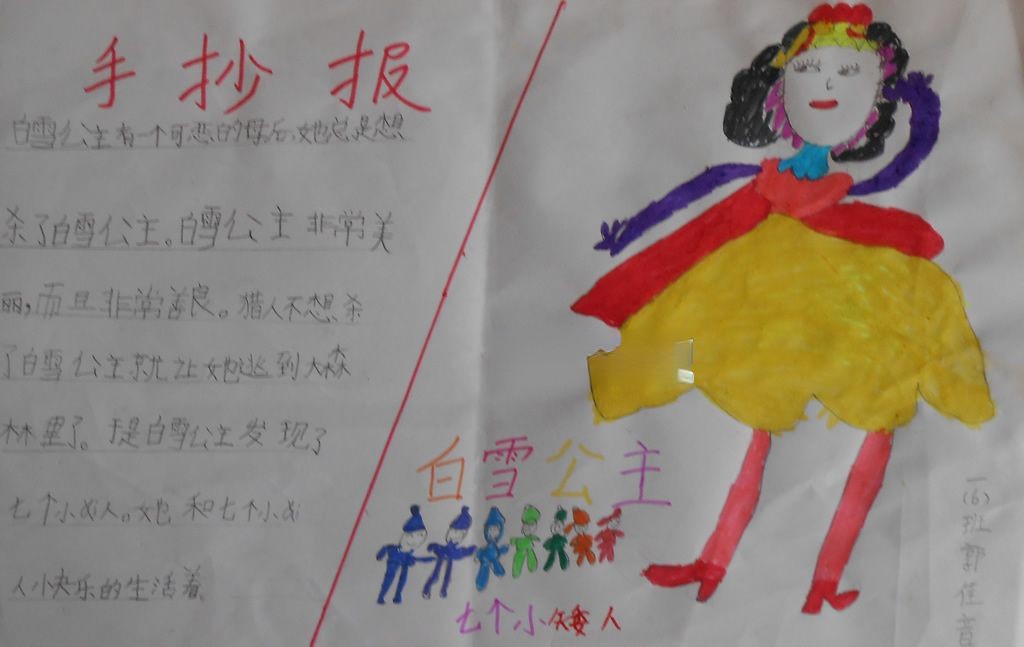 手抄报
白雪公主有一个可恶的母后，她总是想
杀了白雪公主。白雪公主非常美
丽，而且非常善良。猎人不想杀
了白雪公主就让她逃到大森
林里了。于是白雪公主发现了
七个小人。她和七个小
人小快乐的生活着
白雪公主
七个小矮人
一(6)班郭佳音